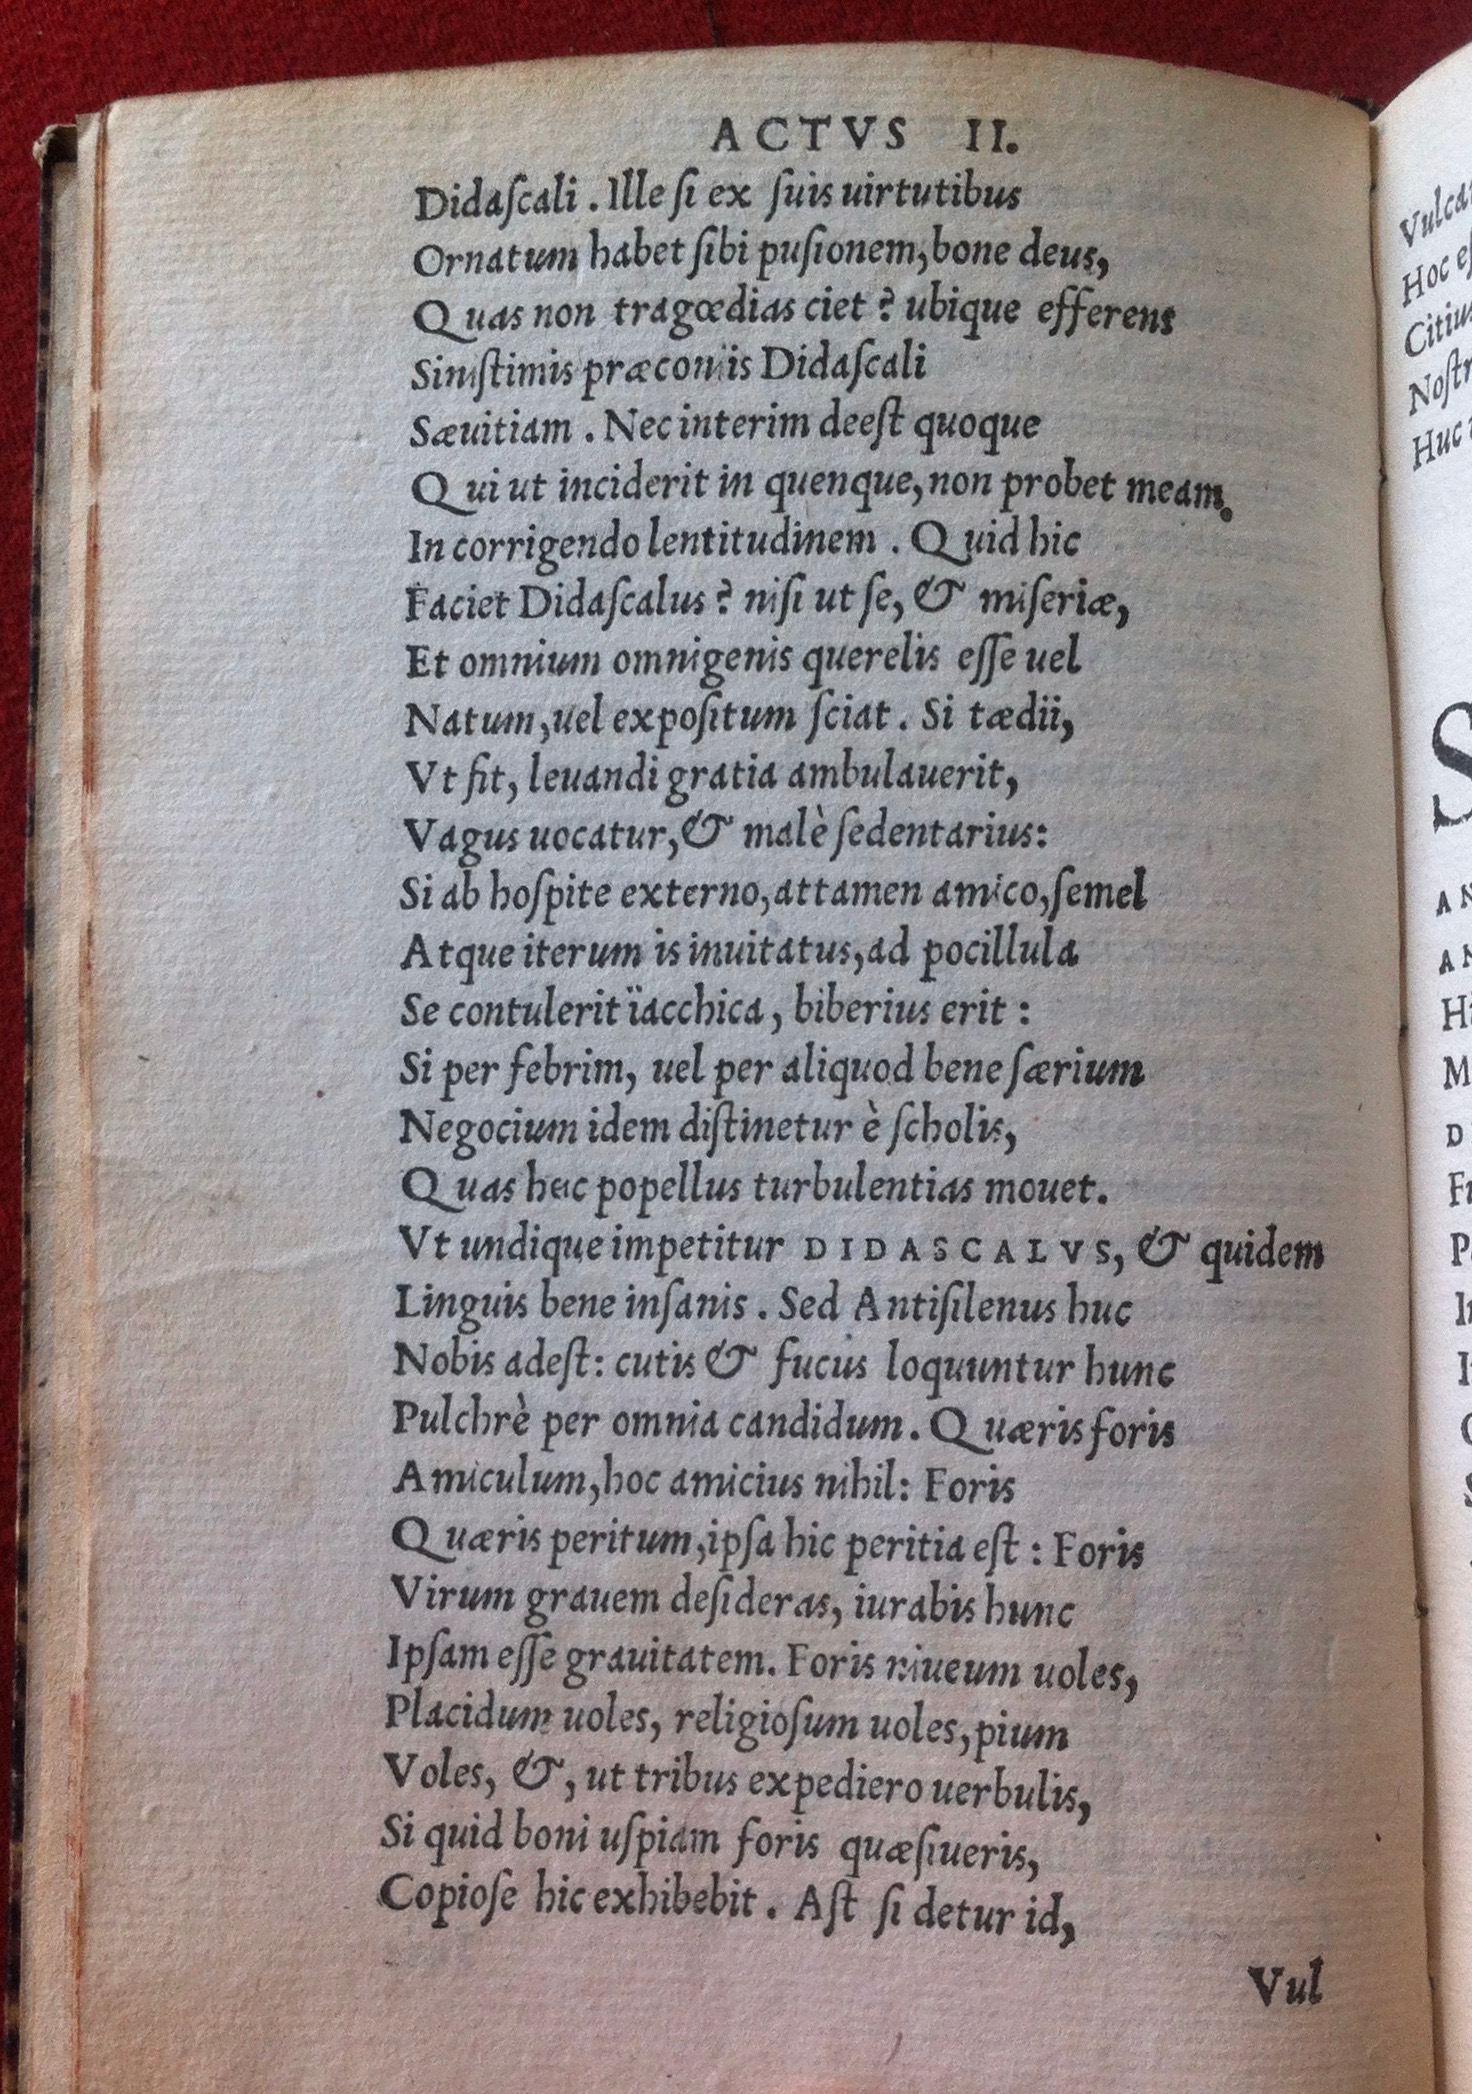 ACTVS II.
Didaſcali. Ille ſi ex ſuis uirtutibus
Ornatum habet ſibi puſionem, bone deus,
Quas non tragœdias ciet? ubique efferens
Siniſtimis præconijs Didaſcali
Sæuitiam. Nec interim deeſt quoque
Qui ut inciderit in quenque, non probet meam.
In corrigendo lentitudinem. Quid hic
Faciet Didaſcalus? niſi ut ſe, & miſeriæ,
Et omnium omnigenis querelis eſſe uel
Natum, uel expoſitum ſciat. Si tædii,
Vt fit, leuandi gratia ambulauerit,
Vagus uocatur, & malè ſedentarius:
Si ab hoſpite externo, attamen amico, ſemel
Atque iterum is inuitatus, ad pocillula
Se contulerit ïacchica, biberius erit:
Si per febrim, uel per aliquod bene ſærium
Negocium idem diſtinetur è ſcholis,
Quas huc popellus turbulentias mouet.
Vt undique impetitur DIDASCALVS, & quidem
Linguis bene inſanis. Sed Antiſilenus huc
Nobis adeſt: cutis & fucus loquuntur hunc
Pulchrè per omnia candidum. Quæris foris
Amiculum, hoc amicius nihil: Foris
Quæris peritum, ipſa hic peritia eſt: Foris
Virum grauem deſideras, iurabis hunc
Ipſam eſſe grauitatem. Foris niueum uoles,
Placidum uoles, religioſum uoles, pium
Voles, &, ut tribus expediero uerbulis,
Si quid boni uſpiam foris quæſiueris,
Copioſe hic exhibebit. Aſt ſi detur id,
Vul
Hoc
Huc